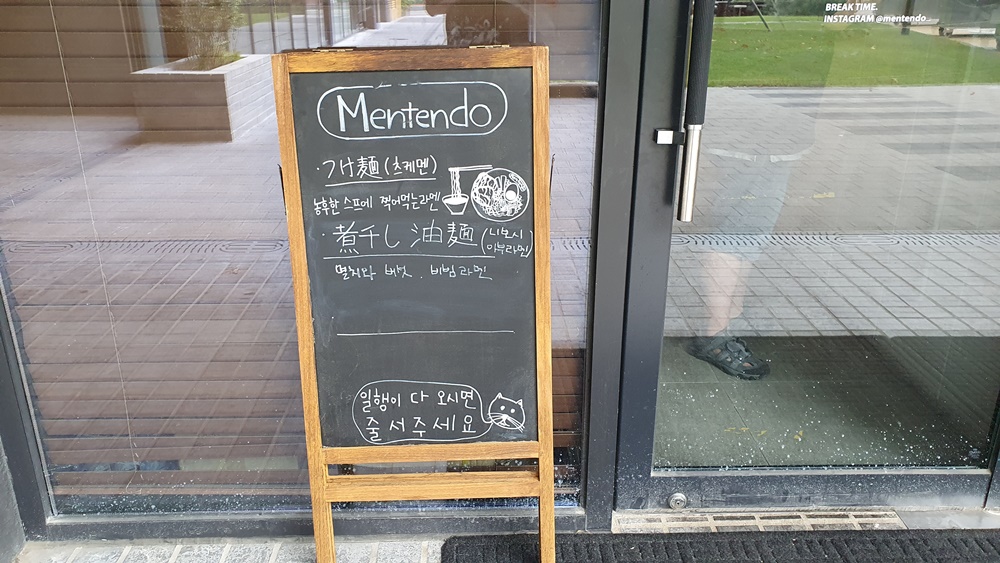 BREAK TIME.
INSTAGRAM @mentendo_
Mentendo
· つけ麺 (츠케멘)
농후한 스프에 찍어먹는라멘
· 煮干し油麺 (니보시
아부라멘)
멸치와 버섯. 비빔라멘
일행이 다 오시면
줄서주세요